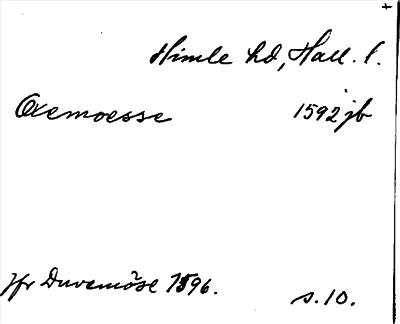 Himle hd, Hall. l.
Oxemoesse 1592 jb
Jfr Duvemöse 1596.
s. 10.